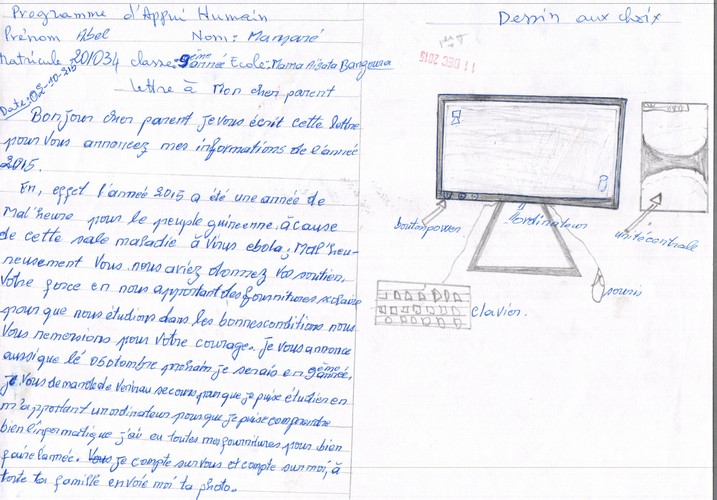 Programme d'Appui Humain
Prénom Abel Nom: Mamané
Matricule 201034 classe: 9ème année Ecole: Mama Aïsata Bangoura
Date: 02-10-215
lettre à Mon cher parent
Bonjour cher parent je vous écrit cette lettre
pour vous annoncez mes informations de l'année
2015.
En, effet l'année 2015 a été une année de
Mal'heure pour le peuple guineenne à cause
de cette sale maladie à virus ebola; Mal'heu-
neusement vous nous aviez donnez vos soutien,
votre force en nous apportant des fournitures scolaire
pour que nous étudions dans les bonnes conditions nous
Vous remersions pour votre courage. Je vous annonce
aussi que le 05 otombre prohain je serais en 9ème année,
je vous demande de venir au secours pour que je puise étudier en
m'apportant un ordinateur pour que je puise comprendre
bien l'informatique j'ai eu toutes mes fournitures pour bien
faire l'année. Vous je compte sur vous et compte sur moi, à
toute ta famille envoie moi ta photo.
Dessin aux choix
11 DEC 2015
bouton power
l'ordinateur
unité centrale
souris
clavier.